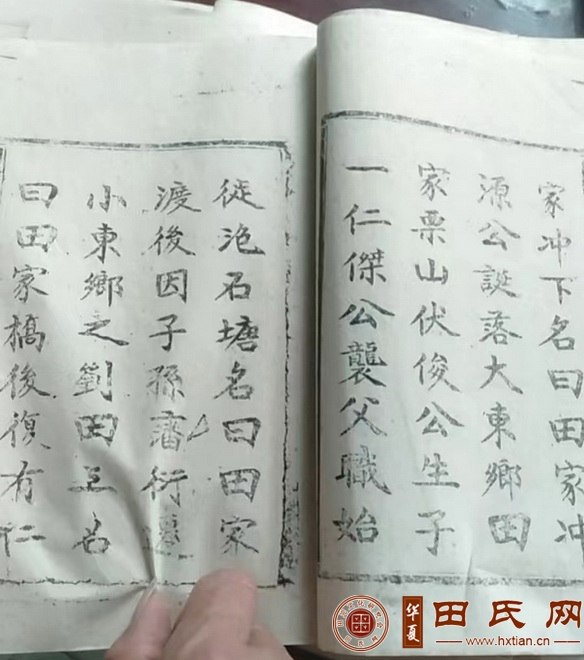 家冲下名曰田家冲
源公誕落大東鄉田
家栗山伏俊公生子
一仁傑公襲父職始
徙泡石塘名曰田家
渡後因子孫藩衍遷
小東鄉之劉田名
曰田家橋後復有仁
华夏
田氏网
www.hxtian.cn